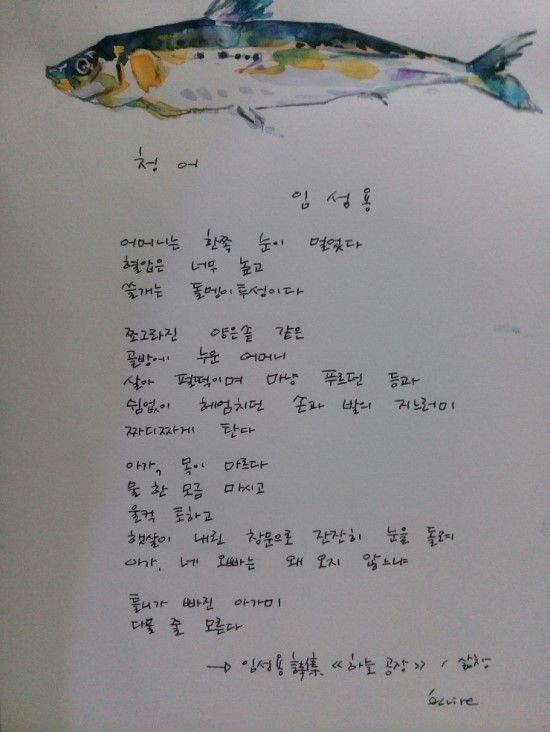 청어
임성용
어머니는 한쪽 눈이 멀었다
혈압은 너무 높고
쓸개는 돌멩이투성이다
쪼그라진 양은솥 같은
골방에 누운 어머니
살아 펄떡이며 마냥 푸르던 등과
쉼없이 헤엄치던 손과 발의 지느러미
짜디짜게 탄다
아가, 목이 마르다
물 한 모금 마시고
울컥 토하고
햇살이 내린 창문으로 잔잔히 눈을 돌려
아가, 네 오빠는 왜 오지 않느냐
틀니가 빠진 아가미
다물 줄 모른다
→ 임성용 詩集 《하늘공장》, 삶창